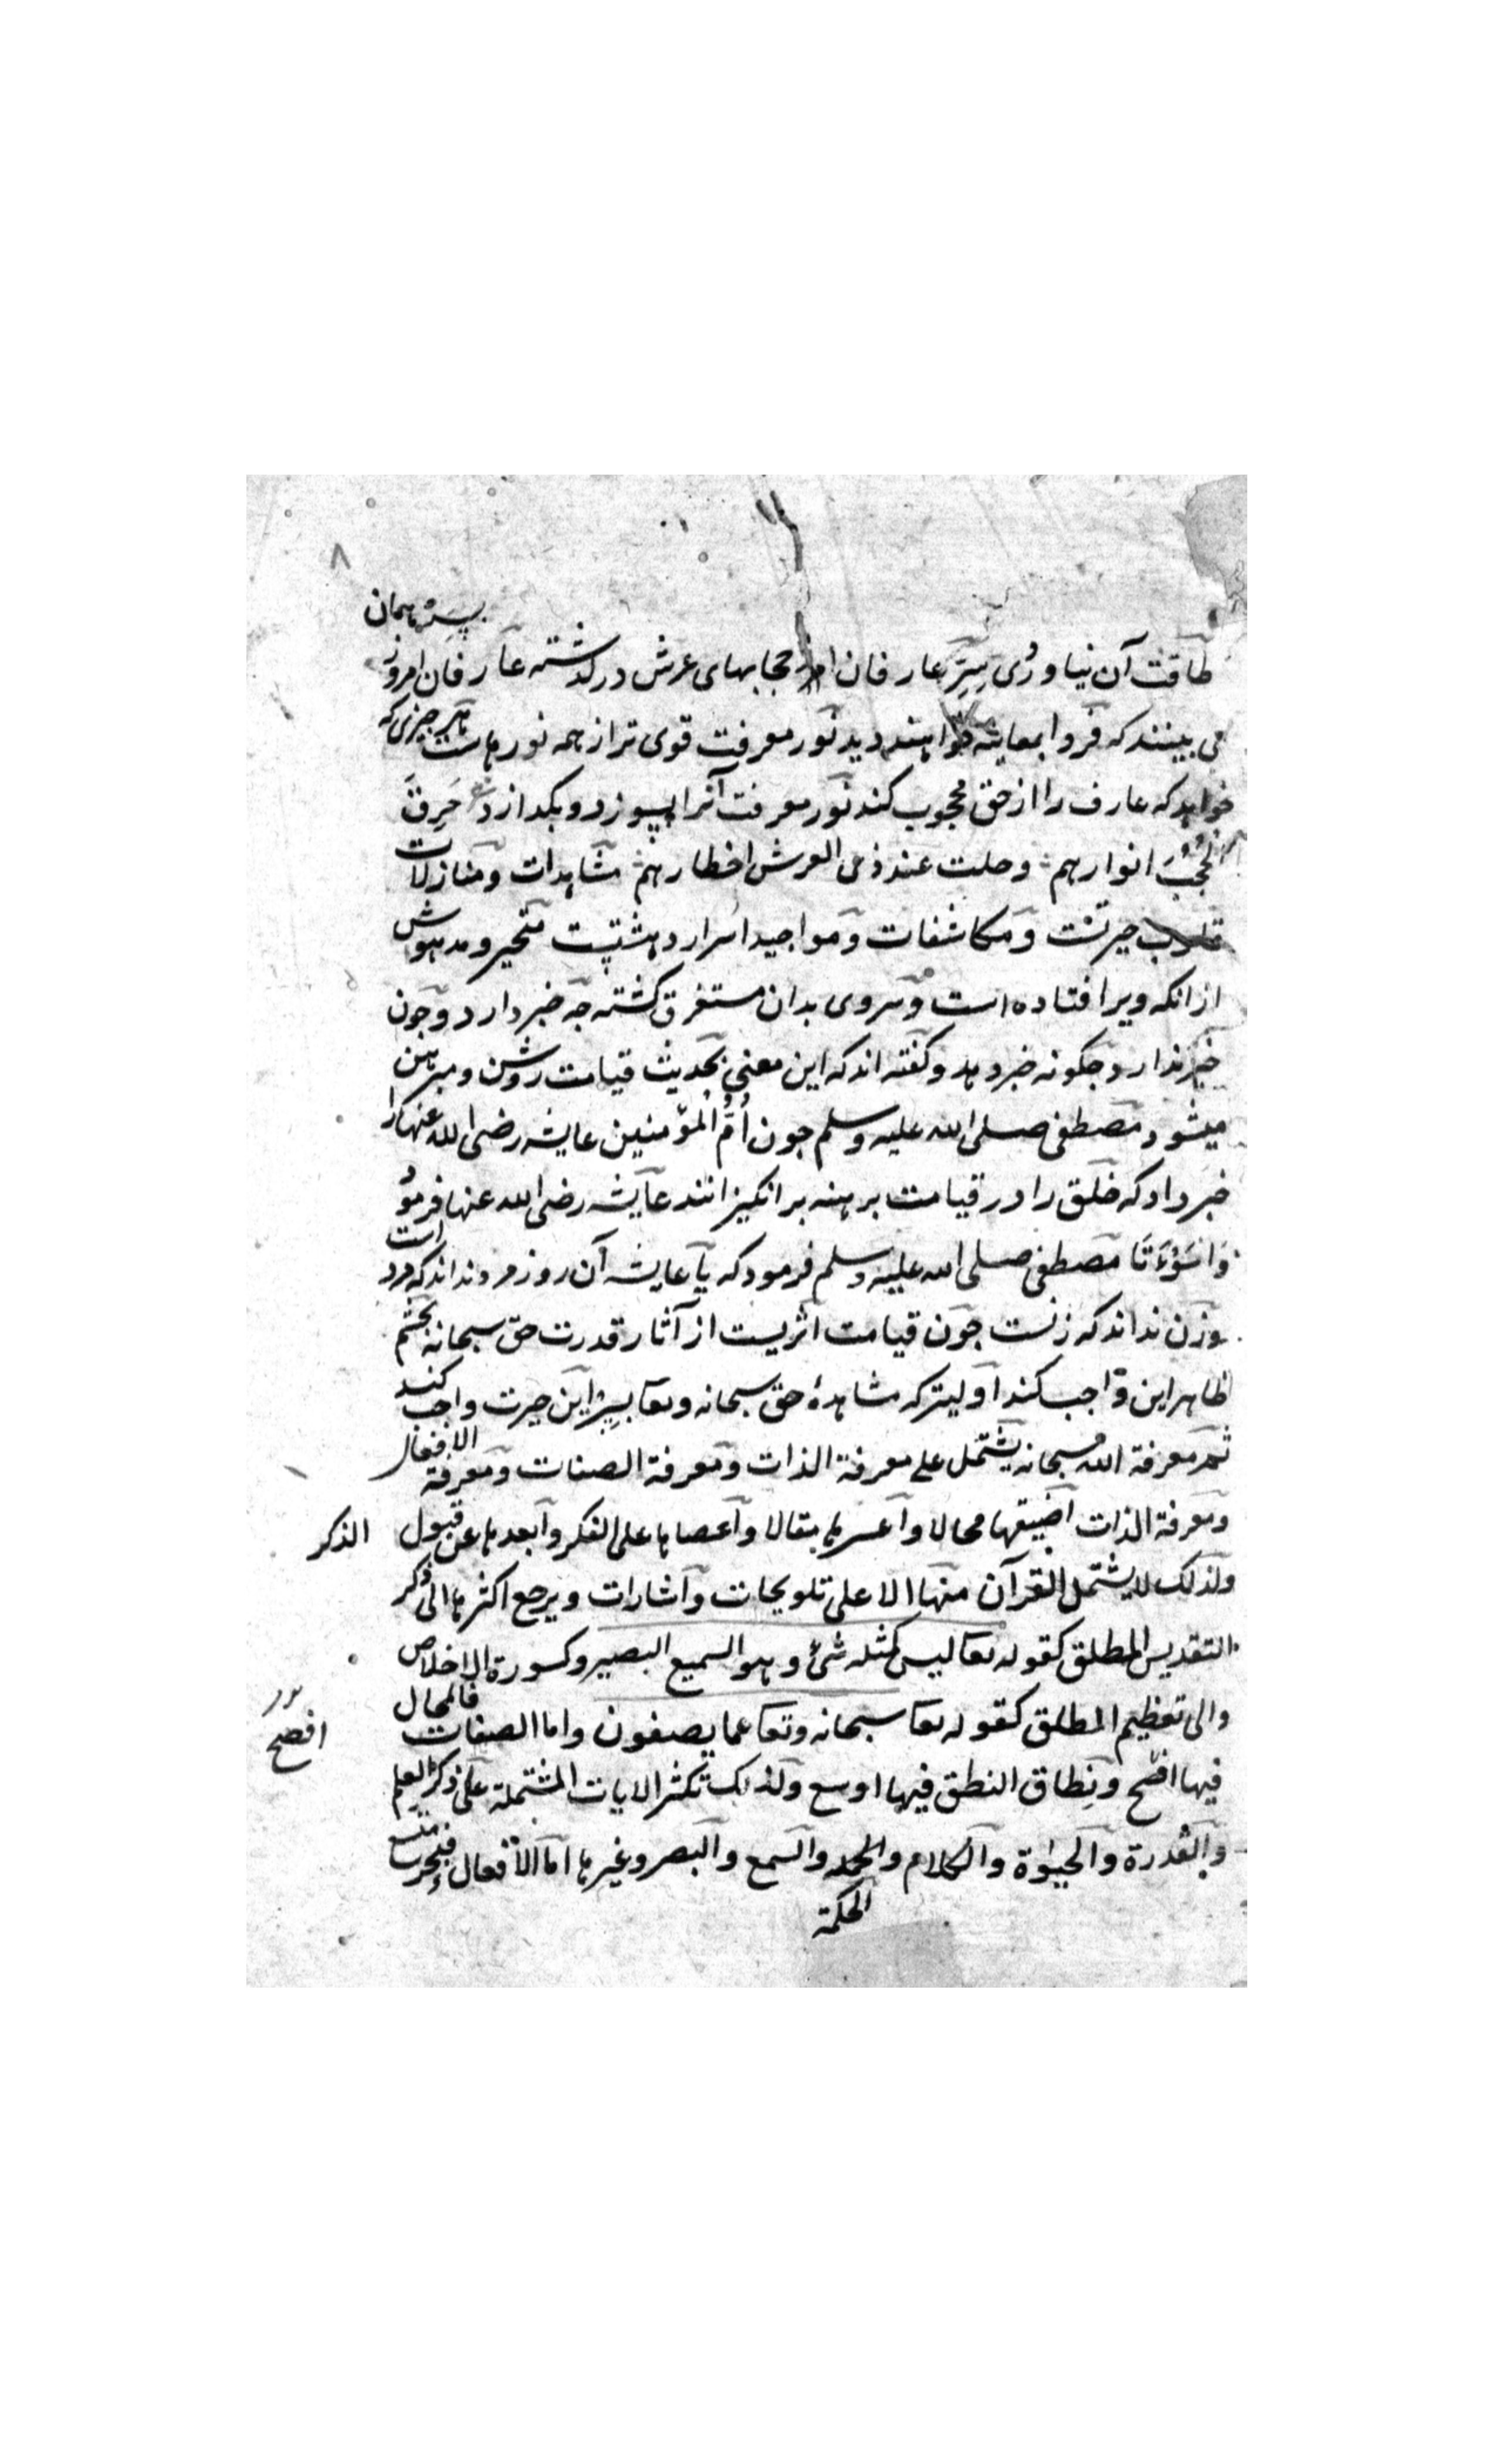 ٨
بسر همان
طاقت آن نیاوردی سِرّ عارفان از حجابهای عرش درگذشته عارفان امروز
می بینند که فردا بمعاینه خواهند دید نور معرفت قوی تر از همه نورهاست هر چیزی که
خواهد که عارف را از حق محجوب کند نور معرفت آنرا بسوزد و بگدازد خرقت
الحُجُبَ انوارهم وحلت عند ذی العرش اخطارهم مشاهدات ومنازلات
حیرتست ومکاشفات ومواجید اسرار دهشتیست متحیر ومدهوش
از انکه ویرا افتاده است وسر وی بدان مستغرق کشته چه خبر دارد وچون
خبر ندارد چگونه خبر دهد وکفته اند که این معنی بحدیث قیامت روشن ومبرهن
میشود مصطفی صلی الله علیه وسلم چون اُمُّ المؤمنین عایشه رضی الله عنها را
خبر داد که خلق را در قیامت برهنه برانکیزانند عایشه رضی الله عنها فرمود
وَاسَوْءَتَا مصطفی صلی الله علیه وسلم فرمود که یا عایشه آن روز مرد نداند که مرد است
وزن نداند که زنست چون قیامت اثریست از آثار قدرت حق سبحانه بچشم
ظاهر این واجب کند اولیتر که مشاهدۀ حق سبحانه وتعا بسِرّ این حیرت واجب کند
ثم معرفة الله سبحانه یشتمل علی معرفة الذات ومعرفة الصفات ومعرفة الافعال
ومعرفة الذات اضیقها مجالا وأعسرها مقالا وأعصاها علی الفکر وأبعدها عن قبول الذکر
ولذلک لا یشتمل القرآن منها الا علی تلویحات وأشارات ویرجع اکثرها الی ذکر
التقدیس المطلق کقوله تعا لیس کمثله شئ وهو السمیع البصیر وکسورة الاخلاص
والی تعظیم المطلق کقوله تعا سبحانه وتعا عما یصفون واما الصفات فالمجال
افصح
فیها افسح ونِطاق النطق فیها اوسع ولذلک تکثر الایات المشتملة علی ذکر العلم
والقدرة والحیٰوة والکلام والحکمة والسمع والبصر وغیرها اما الأفعال فبحر متسع
الحکمة